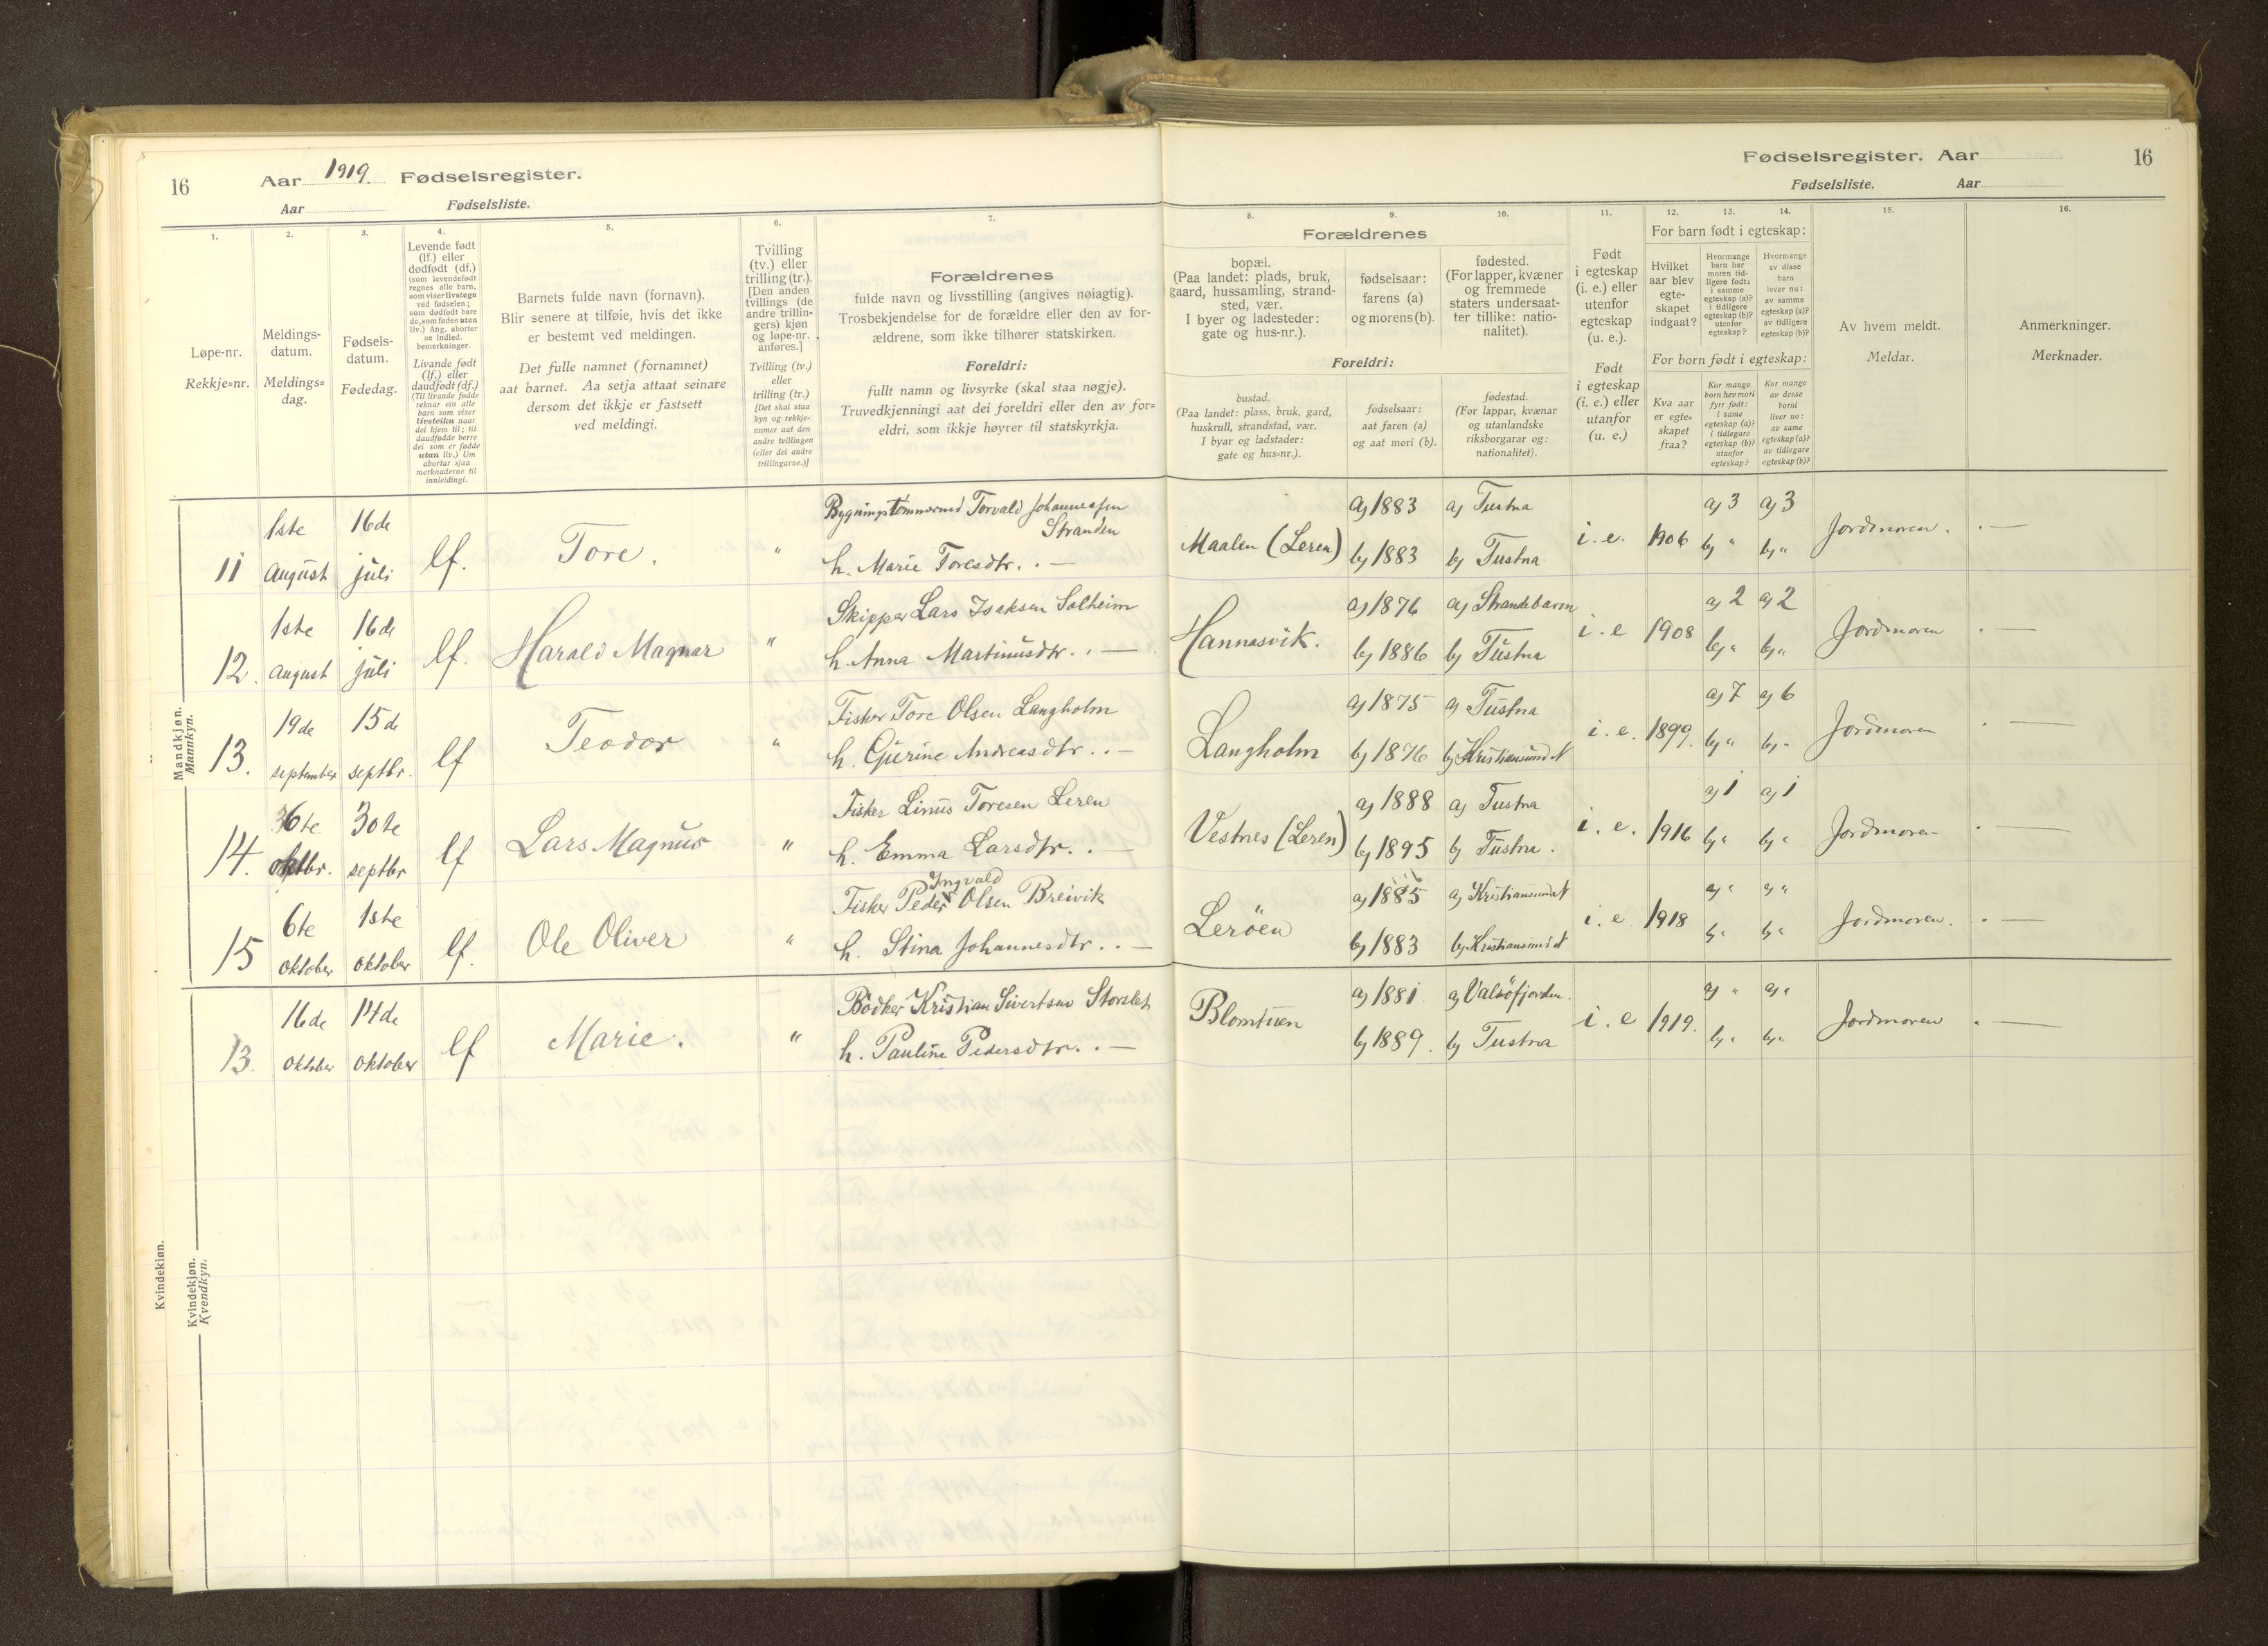 16
Aar 1919. Fødselsregister.
Aar Fødselsliste.
Fødselsregister. Aar
16
Fødselsliste. Aar
1.
Løpe-nr.
Rekkje=nr.
2.
Meldings-
datum.
Meldings=
dag.
3.
Fødsels-
datum.
Fødedag.
4.
Levende født
(lf.) eller
dødfødt (df.)
(som levendefødt
regnes alle barn,
som viser livstegn
ved fødselen;
som dødfødt bare
de, som fødes uten
liv.) Ang. aborter
se indled.
bemerkninger.
Livande født
(lf.) eller
daudfødt (df.)
(Til livande fødde
reknar ein alle
barn som viser
livsteikn naar
dei kjem til; til
daudfødde berre
dei som er fødde
utan liv.) Um
abortar sjaa
merknaderne til
innleidingi.
5.
Barnets fulde navn (fornavn).
Blir senere at tilføie, hvis det ikke
er bestemt ved meldingen.
Det fulle namnet (fornamnet)
aat barnet. Aa setja attaat seinare
dersom det ikkje er fastsett
ved meldingi.
6.
Tvilling
(tv.) eller
trilling (tr.).
[Den anden
tvillings (de
andre trillin-
gers) kjøn
og løpe-nr.
anføres.]
Tvilling (tv.)
eller
trilling (tr.)
[Det skal staa
kyn og rekkje-
numer aat den
andre tvillingen
(eller dei andre
trillingarne.)]
7.
Forældrenes
fulde navn og livsstilling (angives nøiagtig).
Trosbekjendelse for de forældre eller den av for-
ældrene, som ikke tilhører statskirken.
Foreldri:
fullt namn og livsyrke (skal staa nøgje).
Truvedkjenningi aat dei foreldri eller den av for=
eldri, som ikkje høyrer til statskyrkja.
Forældrenes
8.
bopæl.
(Paa landet: plads, bruk,
gaard, hussamling, strand-
sted, vær.
I byer og ladesteder:
gate og hus-nr.).
9.
fødselsaar:
farens (a)
og morens (b).
10.
fødested.
(For lapper, kvæner
og fremmede
staters undersaat-
ter tillike: natio-
nalitet).
Foreldri:
bustad.
(Paa landet: plass, bruk, gard,
huskrull, strandstad, vær.
I byar og ladstader:
gate og hus=nr.).
fødselsaar:
aat faren (a)
og aat mori (b).
fødestad.
(For lappar, kvænar
og utanlandske
riksborgarar og:
nationalitet).
11.
Født
i egteskap
(i. e.) eller
utenfor
egteskap
(u. e.).
Født
i egteskap
(i. e.) eller
utanfor
(u. e.)
12. 13. 14.
For barn født i egteskap:
Hvilket
aar blev
egte-
skapet
indgaat?
Hvormange
barn har
moren tid-
ligere født:
i samme
egteskap (a)?
i tidligere
egteskap (b)?
utenfor
egteskap?
Hvormange
av disse
barn
lever nu:
av samme
egteskap (a)?
av tidligere
egteskap (b)?
For born født i egteskap:
Kva aar
er egte=
skapet
fraa?
Kor mange
born hev mori
fyrr født:
i same
egteskap (a)?
i tidlegare
egteskap (b)?
utanfor
egteskap?
Kor mange
av desse
borni
liver no:
av same
egteskap (a)?
av tidlegare
egteskap (b)?
15.
Av hvem meldt.
Meldar.
16.
Anmerkninger.
Merknader.
Mandkjøn.
Mannkyn.
11 1ste August 16de juli lf. Tore. "
Bygningstømmermd Torvald Johannessen
Stranden
h. Marie Toresdtr. . —
Maalen (Leren) a) 1883 b) 1883 a) Tustna b) Tustna i. e. 1906 a) 3 b) " a) 3 b) " Jordmoren. . —
12. 1ste august 16de juli lf. Harald Magnar "
Skipper Lars Isaksen Solheim
h. Anna Martinusdtr. . —
Hannasvik. a) 1876 b) 1886 a) Strandebarm b) Tustna i. e 1908 a) 2 b) " a) 2 b) " Jordmoren . —
13. 19de september 15de septbr. lf Teodor "
Fisker Tore Olsen Langholm
h. Gjurine Andreasdtr. . —
Langholm a) 1875 b) 1876 a) Tustna b) Kristiansund N i. e. 1899. a) 7 b) " a) 6 b) " Jordmoren . —
14. 6te oktbr. 30te septbr lf Lars Magnus "
Fisker Linus Toresen Leren
h. Emma Larsdtr. . —
Vestnes (Leren) a) 1888 b) 1895 a) Tustna b) Tustna. i. e. 1916 a) 1 b) " a) 1 b) " Jordmoren . —
15 6te oktober 1ste oktober lf. Ole Oliver "
Ingvald
Fisker Peder Olsen Breivik
h. Stina Johannesdtr. . —
Lerøen a) 1885 b) 1883 a) Kristiansund N b) Kristiansund N i. e 1918 a) " b) " a) " b) " Jordmoren. . —
Kvindekjøn.
Kvindekjøn.
Kvendkyn.
13. 16de oktober 14de oktober lf Marie. "
Bødker Kristian Sivertsen Storslet
h. Pauline Pedersdtr. . —
Blomtuen a) 1881. b) 1889. a) Valsøfjorden. b) Tustna i. e 1919. a) " b) " a) " b) " Jordmoren . —